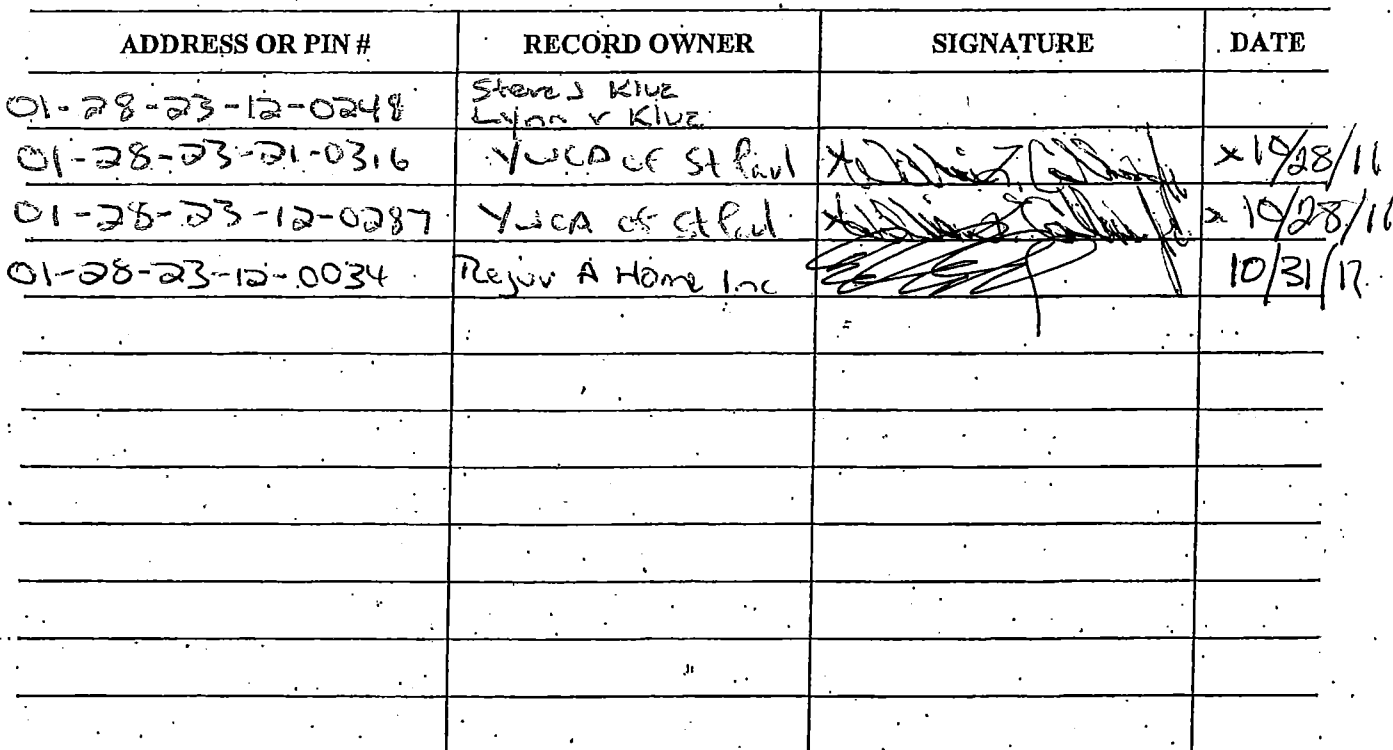 ADDRESS OR PIN # RECORD OWNER SIGNATURE DATE
01-28-23-12-0248 Steve J Kluz
Lynn V Kluz
01-28-23-21-0316 YWCA of St Paul x 10/28/11
01-28-23-12-0287 YWCA of St Paul x 10/28/11
01-28-23-12-0034 Rejuv A Home Inc 10/31/12